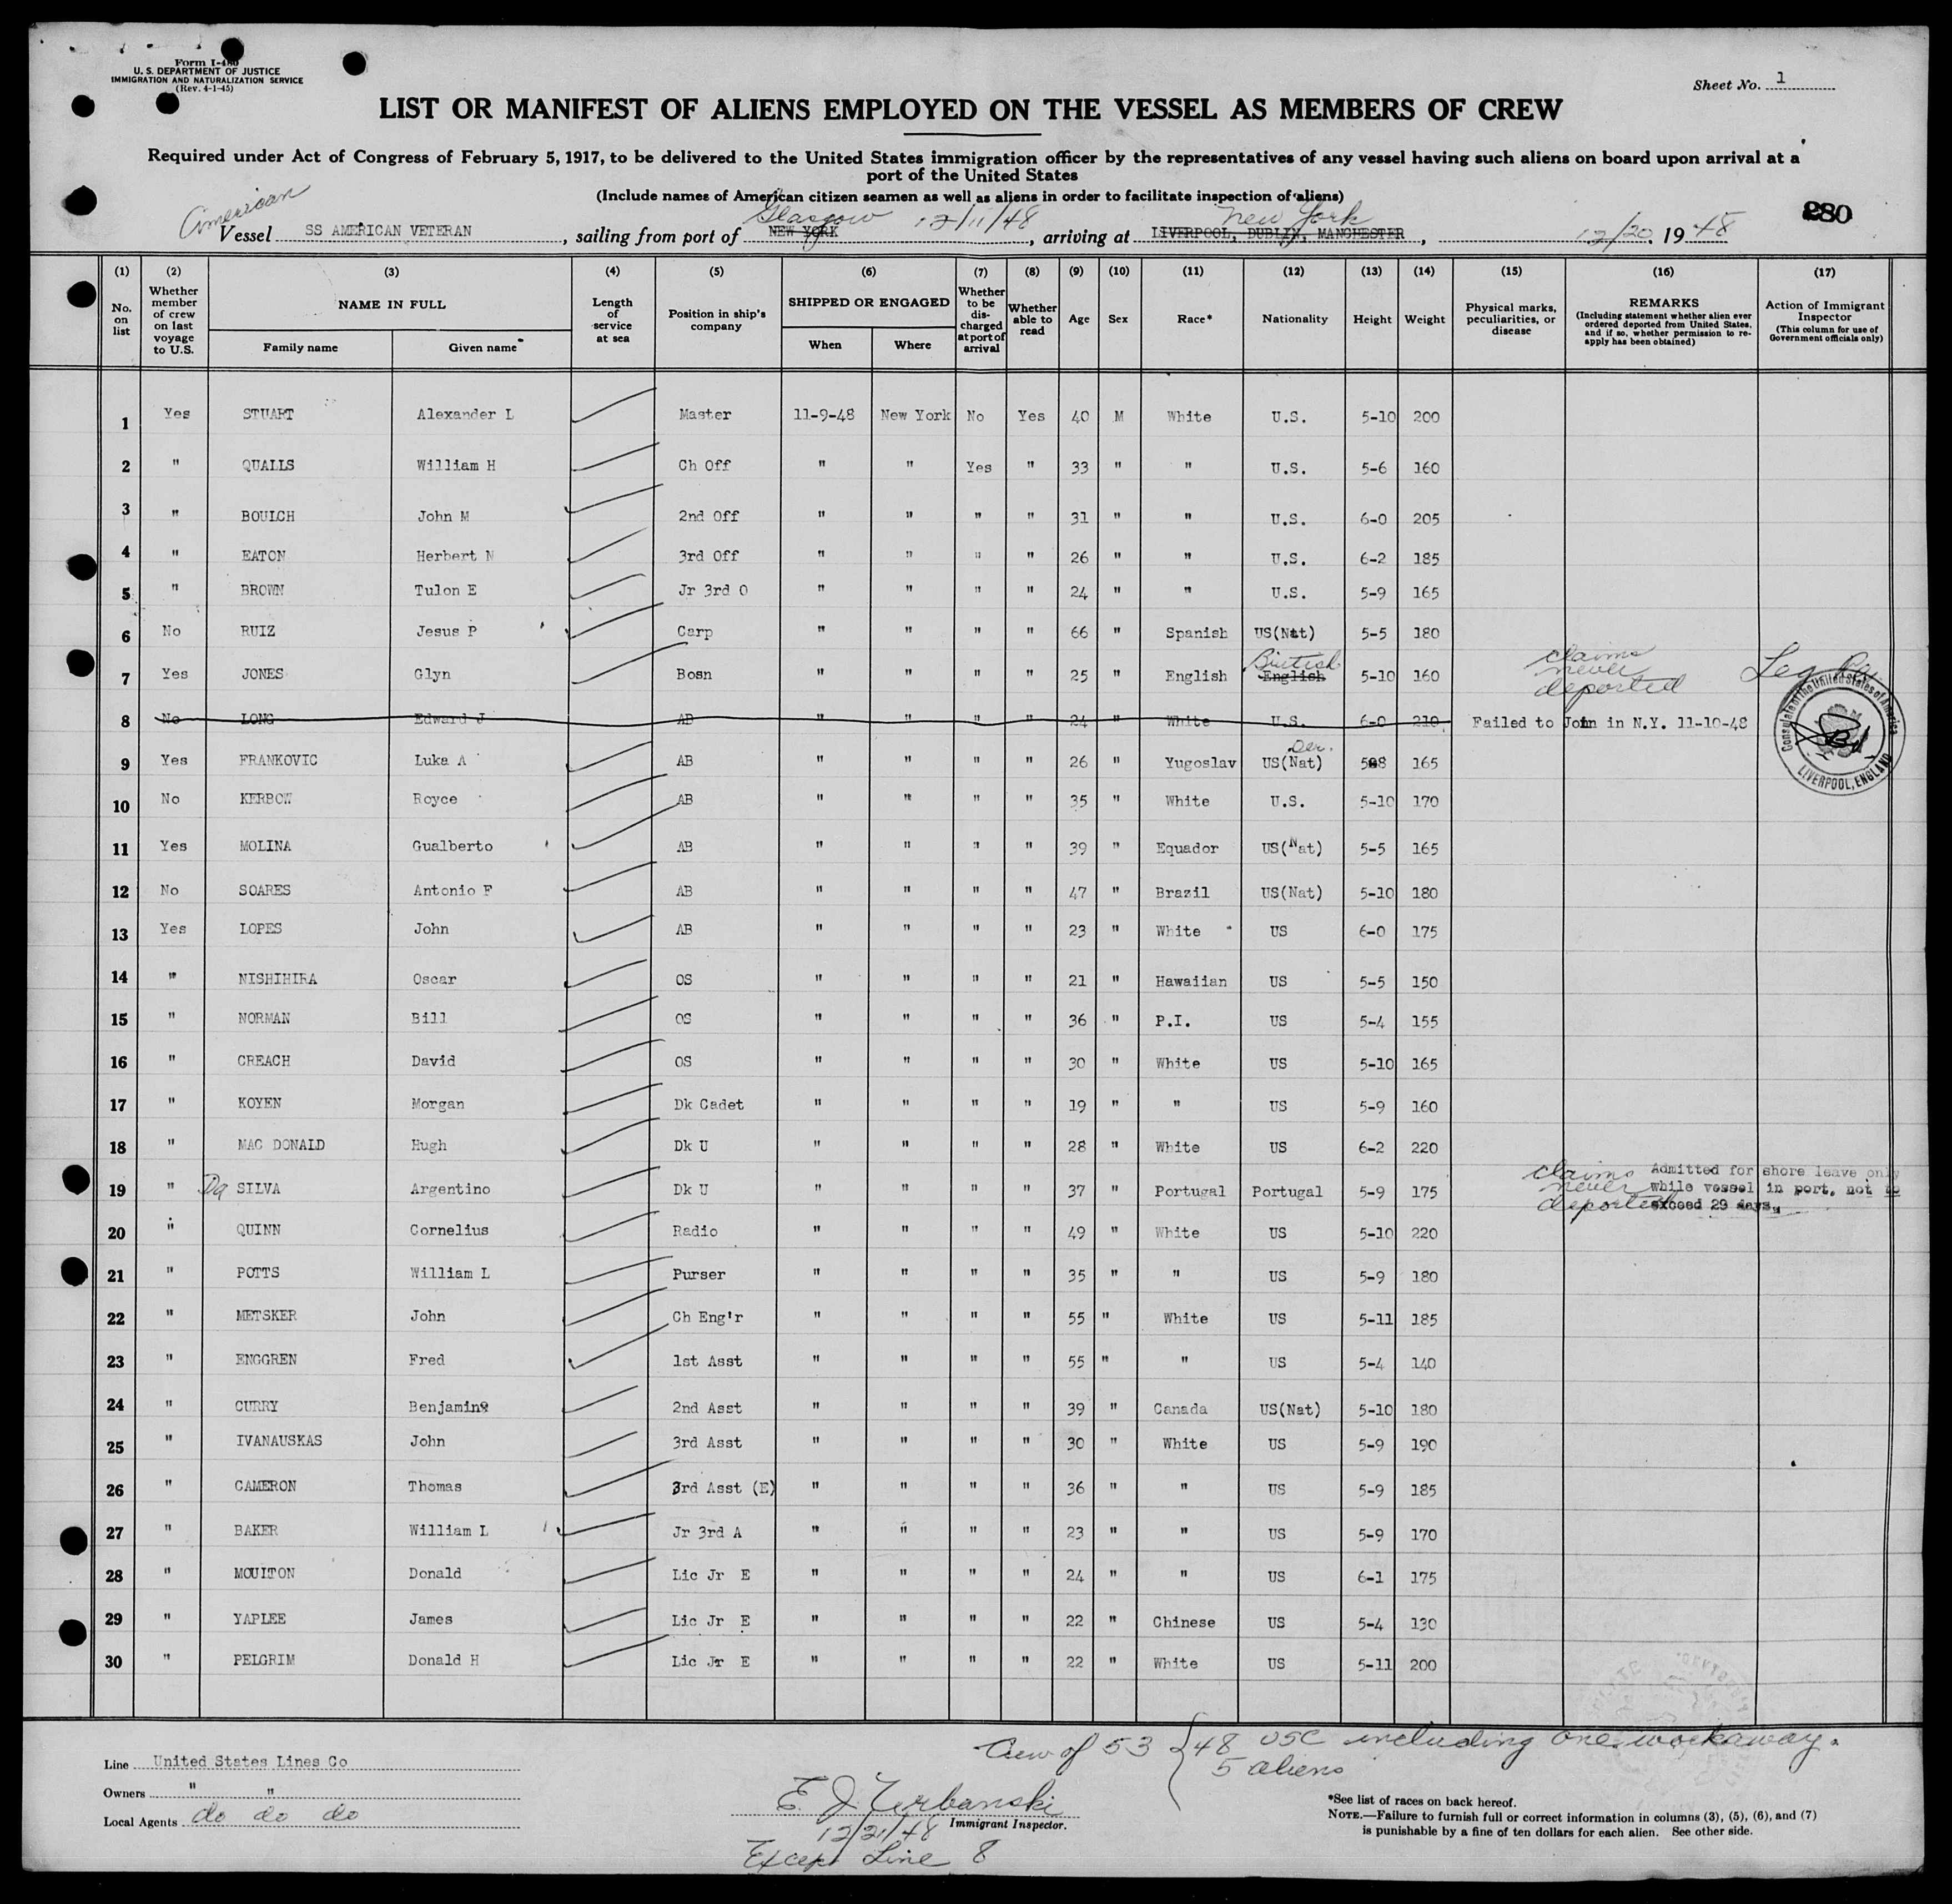 Form I-480
U. S. DEPARTMENT OF JUSTICE
IMMIGRATION AND NATURALIZATION SERVICE
(Rev. 4-1-45)
Sheet No. 1
LIST OR MANIFEST OF ALIENS EMPLOYED ON THE VESSEL AS MEMBERS OF CREW
Required under Act of Congress of February 5, 1917, to be delivered to the United States immigration officer by the representatives of any vessel having such aliens on board upon arrival at a
port of the United States
(Include names of American citizen seamen as well as aliens in order to facilitate inspection of aliens)
280
American Glasgow 12/11/48 New York
Vessel SS AMERICAN VETERAN, sailing from port of NEW YORK, arriving at LIVERPOOL, DUBLIN, MANCHESTER, 12/20, 1948
(1) (2) (3) (4) (5) (6) (7) (8) (9) (10) (11) (12) (13) (14) (15) (16) (17)
No. on list
Whether member of crew on last voyage to U.S.
NAME IN FULL
Family name
Given name
Length of service at sea
Position in ship's company
SHIPPED OR ENGAGED
When
Where
Whether to be discharged at port of arrival
Whether able to read
Age
Sex
Race*
Nationality
Height
Weight
Physical marks, peculiarities, or disease
REMARKS
(Including statement whether alien ever ordered deported from United States, and if so, whether permission to reapply has been obtained)
Action of Immigrant Inspector
(This column for use of Government officials only)
1 Yes STUART Alexander L Master 11-9-48 New York No Yes 40 M White U.S. 5-10 200
2 " QUALLS William H Ch Off " " Yes " 33 " " U.S. 5-6 160
3 " BOULCH John M 2nd Off " " " " 31 " " U.S. 6-0 205
4 " EATON Herbert N 3rd Off " " " " 26 " " U.S. 6-2 185
5 " BROWN Tulon E Jr 3rd O " " " " 24 " " U.S. 5-9 165
6 No RUIZ Jesus P Carp " " " " 66 " Spanish US(Nat) 5-5 180
7 Yes JONES Glyn Bosn " " " " 25 " English English British 5-10 160 claims never deported
8 No LONG Edward J AB " " " " 24 " White U.S. 6-0 210 Failed to Join in N.Y. 11-10-48
Consulate of the United States of America
LIVERPOOL, ENGLAND
9 Yes FRANKOVIC Luka A AB " " " " 26 " Yugoslav US(Nat) Der. 5-8 165
10 No KERBOW Royce AB " " " " 35 " White U.S. 5-10 170
11 Yes MOLINA Gualberto AB " " " " 39 " Equador US(Nat) 5-5 165
12 No SOARES Antonio F AB " " " " 47 " Brazil US(Nat) 5-10 180
13 Yes LOPES John AB " " " " 23 " White US 6-0 175
14 " NISHIHIRA Oscar OS " " " " 21 " Hawaiian US 5-5 150
15 " NORMAN Bill OS " " " " 36 " P.I. US 5-4 155
16 " CREACH David OS " " " " 30 " White US 5-10 165
17 " KOYEN Morgan Dk Cadet " " " " 19 " " US 5-9 160
18 " MAC DONALD Hugh Dk U " " " " 28 " White US 6-2 220
19 " Da SILVA Argentino Dk U " " " " 37 " Portugal Portugal 5-9 175 claims never deported Admitted for shore leave only while vessel in port, not to exceed 29 days.
20 " QUINN Cornelius Radio " " " " 49 " White US 5-10 220
21 " POTTS William L Purser " " " " 35 " " US 5-9 180
22 " METSKER John Ch Eng'r " " " " 55 " White US 5-11 185
23 " ENGGREN Fred 1st Asst " " " " 55 " " US 5-4 140
24 " CURRY Benjamin 2nd Asst " " " " 39 " Canada US(Nat) 5-10 180
25 " IVANAUSKAS John 3rd Asst " " " " 30 " White US 5-9 190
26 " CAMERON Thomas 3rd Asst (E) " " " " 36 " " US 5-9 185
27 " BAKER William L Jr 3rd A " " " " 23 " " US 5-9 170
28 " MOULTON Donald Lic Jr E " " " " 24 " " US 6-1 175
29 " YAPLEE James Lic Jr E " " " " 22 " Chinese US 5-4 130
30 " PELGRIM Donald H Lic Jr E " " " " 22 " White US 5-11 200
Crew of 53 { 48 USC including one workaway.
5 aliens
Line United States Lines Co
Owners " "
Local Agents do do do
E. J. Urbanski
Immigrant Inspector.
12/21/48
Except Line 8
*See list of races on back hereof.
NOTE.—Failure to furnish full or correct information in columns (3), (5), (6), and (7)
is punishable by a fine of ten dollars for each alien. See other side.